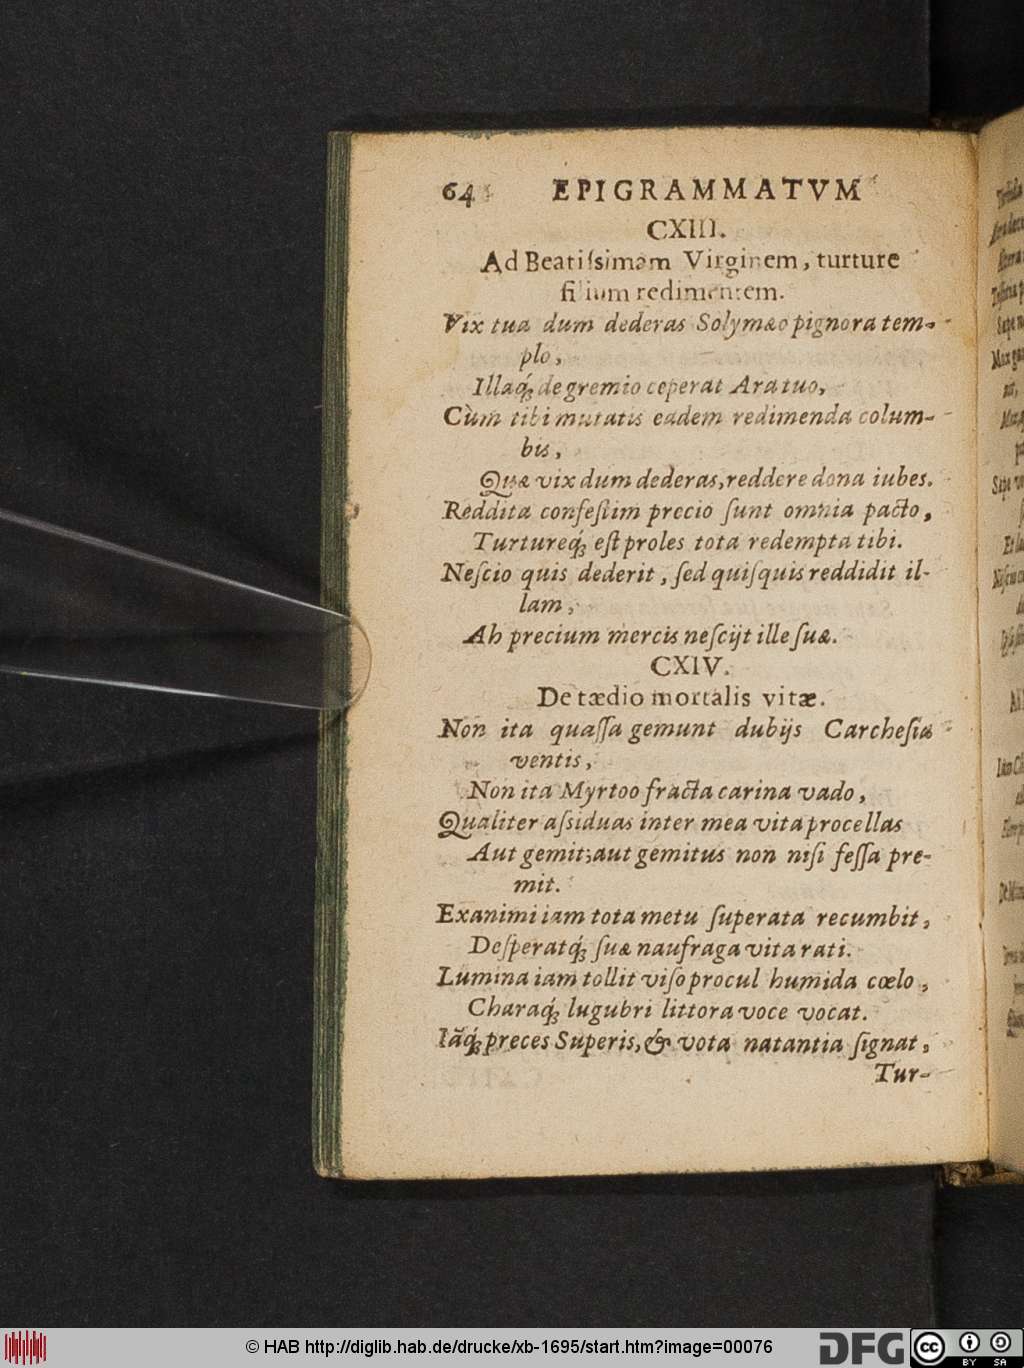 64 EPIGRAMMATVM
CXIII.
Ad Beatiſsimam Virginem, turture
filium redimentem.
Vix tua dum dederas Solymæo pignora tem-
plo,
Illaq́; de gremio ceperat Ara tuo,
Cùm tibi mutatis eadem redimenda colum-
bis,
Quæ vix dum dederas, reddere dona iubes.
Reddita confeſtim precio ſunt omnia pacto,
Turtureq́; eſt proles tota redempta tibi.
Neſcio quis dederit, ſed quiſquis reddidit il-
lam,
Ah precium mercis neſcijt ille ſuæ.
CXIV.
De tædio mortalis vitæ.
Non ita quaſſa gemunt dubijs Carcheſia
ventis,
Non ita Myrtoo fracta carina vado,
Qualiter aſsiduas inter mea vita procellas
Aut gemit; aut gemitus non niſi feſſa pre-
mit.
Exanimi iam tota metu ſuperata recumbit,
Deſperatq́; ſuæ naufraga vita rati.
Lumina iam tollit viſo procul humida cœlo,
Charaq́; lugubri littora voce vocat.
Iāq́; preces Superis, & vota natantia ſignat,
Tur-
© HAB http://diglib.hab.de/drucke/xb-1695/start.htm?image=00076
DFG
cc
BY SA